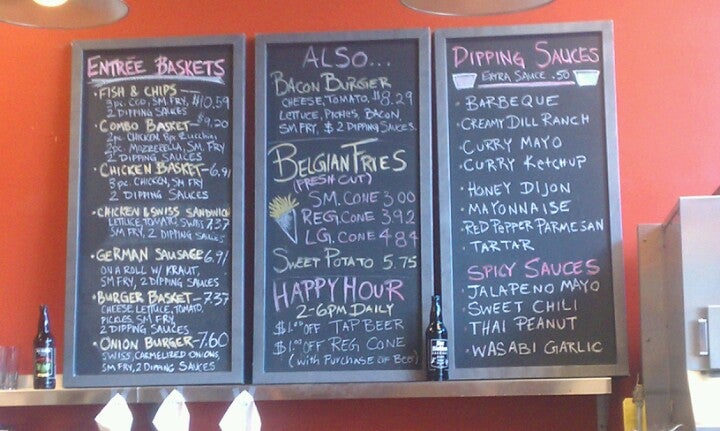 ENTRÉE BASKETS
• FISH & CHIPS —
3 pc. COD, SM FRY, $10.59
2 DIPPING SAUCES
• COMBO BASKET — $9.20
2 pc. CHICKEN, 8 pc Zucchini,
2 pc. MOZZERELLA, SM. FRY
2 DIPPING SAUCES
• CHICKEN BASKET - 6.91
3 pc. CHICKEN, SM FRY
2 DIPPING SAUCES
• CHICKEN & SWISS SANDWICH
LETTUCE, TOMATO, SWISS 7.37
SM FRY, 2 DIPPING SAUCES
• GERMAN SAUSAGE 6.91
ON A ROLL W/ KRAUT,
SM FRY, 2 DIPPING SAUCES
• BURGER BASKET - 7.37
CHEESE, LETTUCE, TOMATO,
PICKLES, SM FRY
2 DIPPING SAUCES
• ONION BURGER - 7.60
SWISS, CARMELIZED ONIONS,
SM FRY, 2 DIPPING SAUCES
ALSO...
BACON BURGER
CHEESE, TOMATO, $8.29
LETTUCE, PICKLES, BACON,
SM FRY, & 2 DIPPING SAUCES.
BELGIAN FRIES
(FRESH CUT)
SM. CONE 3.00
REG. CONE 3.92
LG. CONE 4.84
SWEET POTATO 5.75
HAPPY HOUR
2-6PM DAILY
$1.00 OFF TAP BEER
$1.00 OFF REG CONE
(with Purchase of Beer)
DIPPING SAUCES
EXTRA SAUCE .50
• BARBEQUE
• CREAMY DILL RANCH
• CURRY MAYO
• CURRY KETCHUP
• HONEY DIJON
• MAYONNAISE
• RED PEPPER PARMESAN
• TARTAR
SPICY SAUCES
• JALAPENO MAYO
• SWEET CHILI
• THAI PEANUT
• WASABI GARLIC